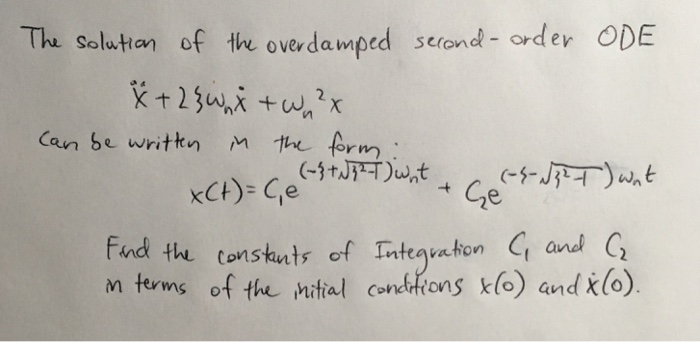 The solution of the overdamped second-order ODE
ẍ + 2ζωₙẋ + ωₙ²x
Can be written in the form:
x(t) = C₁e^(-ζ+√(ζ²-1))ωₙt + C₂e^(-ζ-√(ζ²-1))ωₙt
Find the constants of Integration C₁ and C₂
in terms of the initial conditions x(0) and ẋ(0).